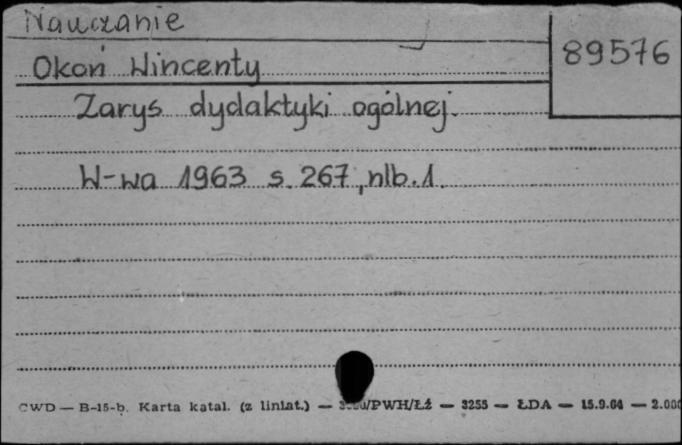 Nauczanie
89576
Okoń Wincenty
Zarys dydaktyki ogólnej.
W-wa 1963 s. 267, nlb. 1.
CWD — B-15-b. Karta katal. (z liniat.) — /PWH/Łź — 3255 — ŁDA — 15.9.64 — 2.000